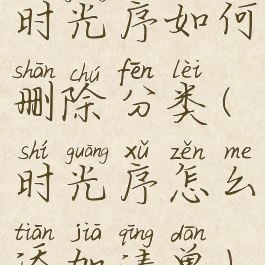 时光序如何
shān chú fēn lèi
删除分类(
shí guāng xǔ zěn me
时光序怎么
tiān jiā qīng dān
添加清单)